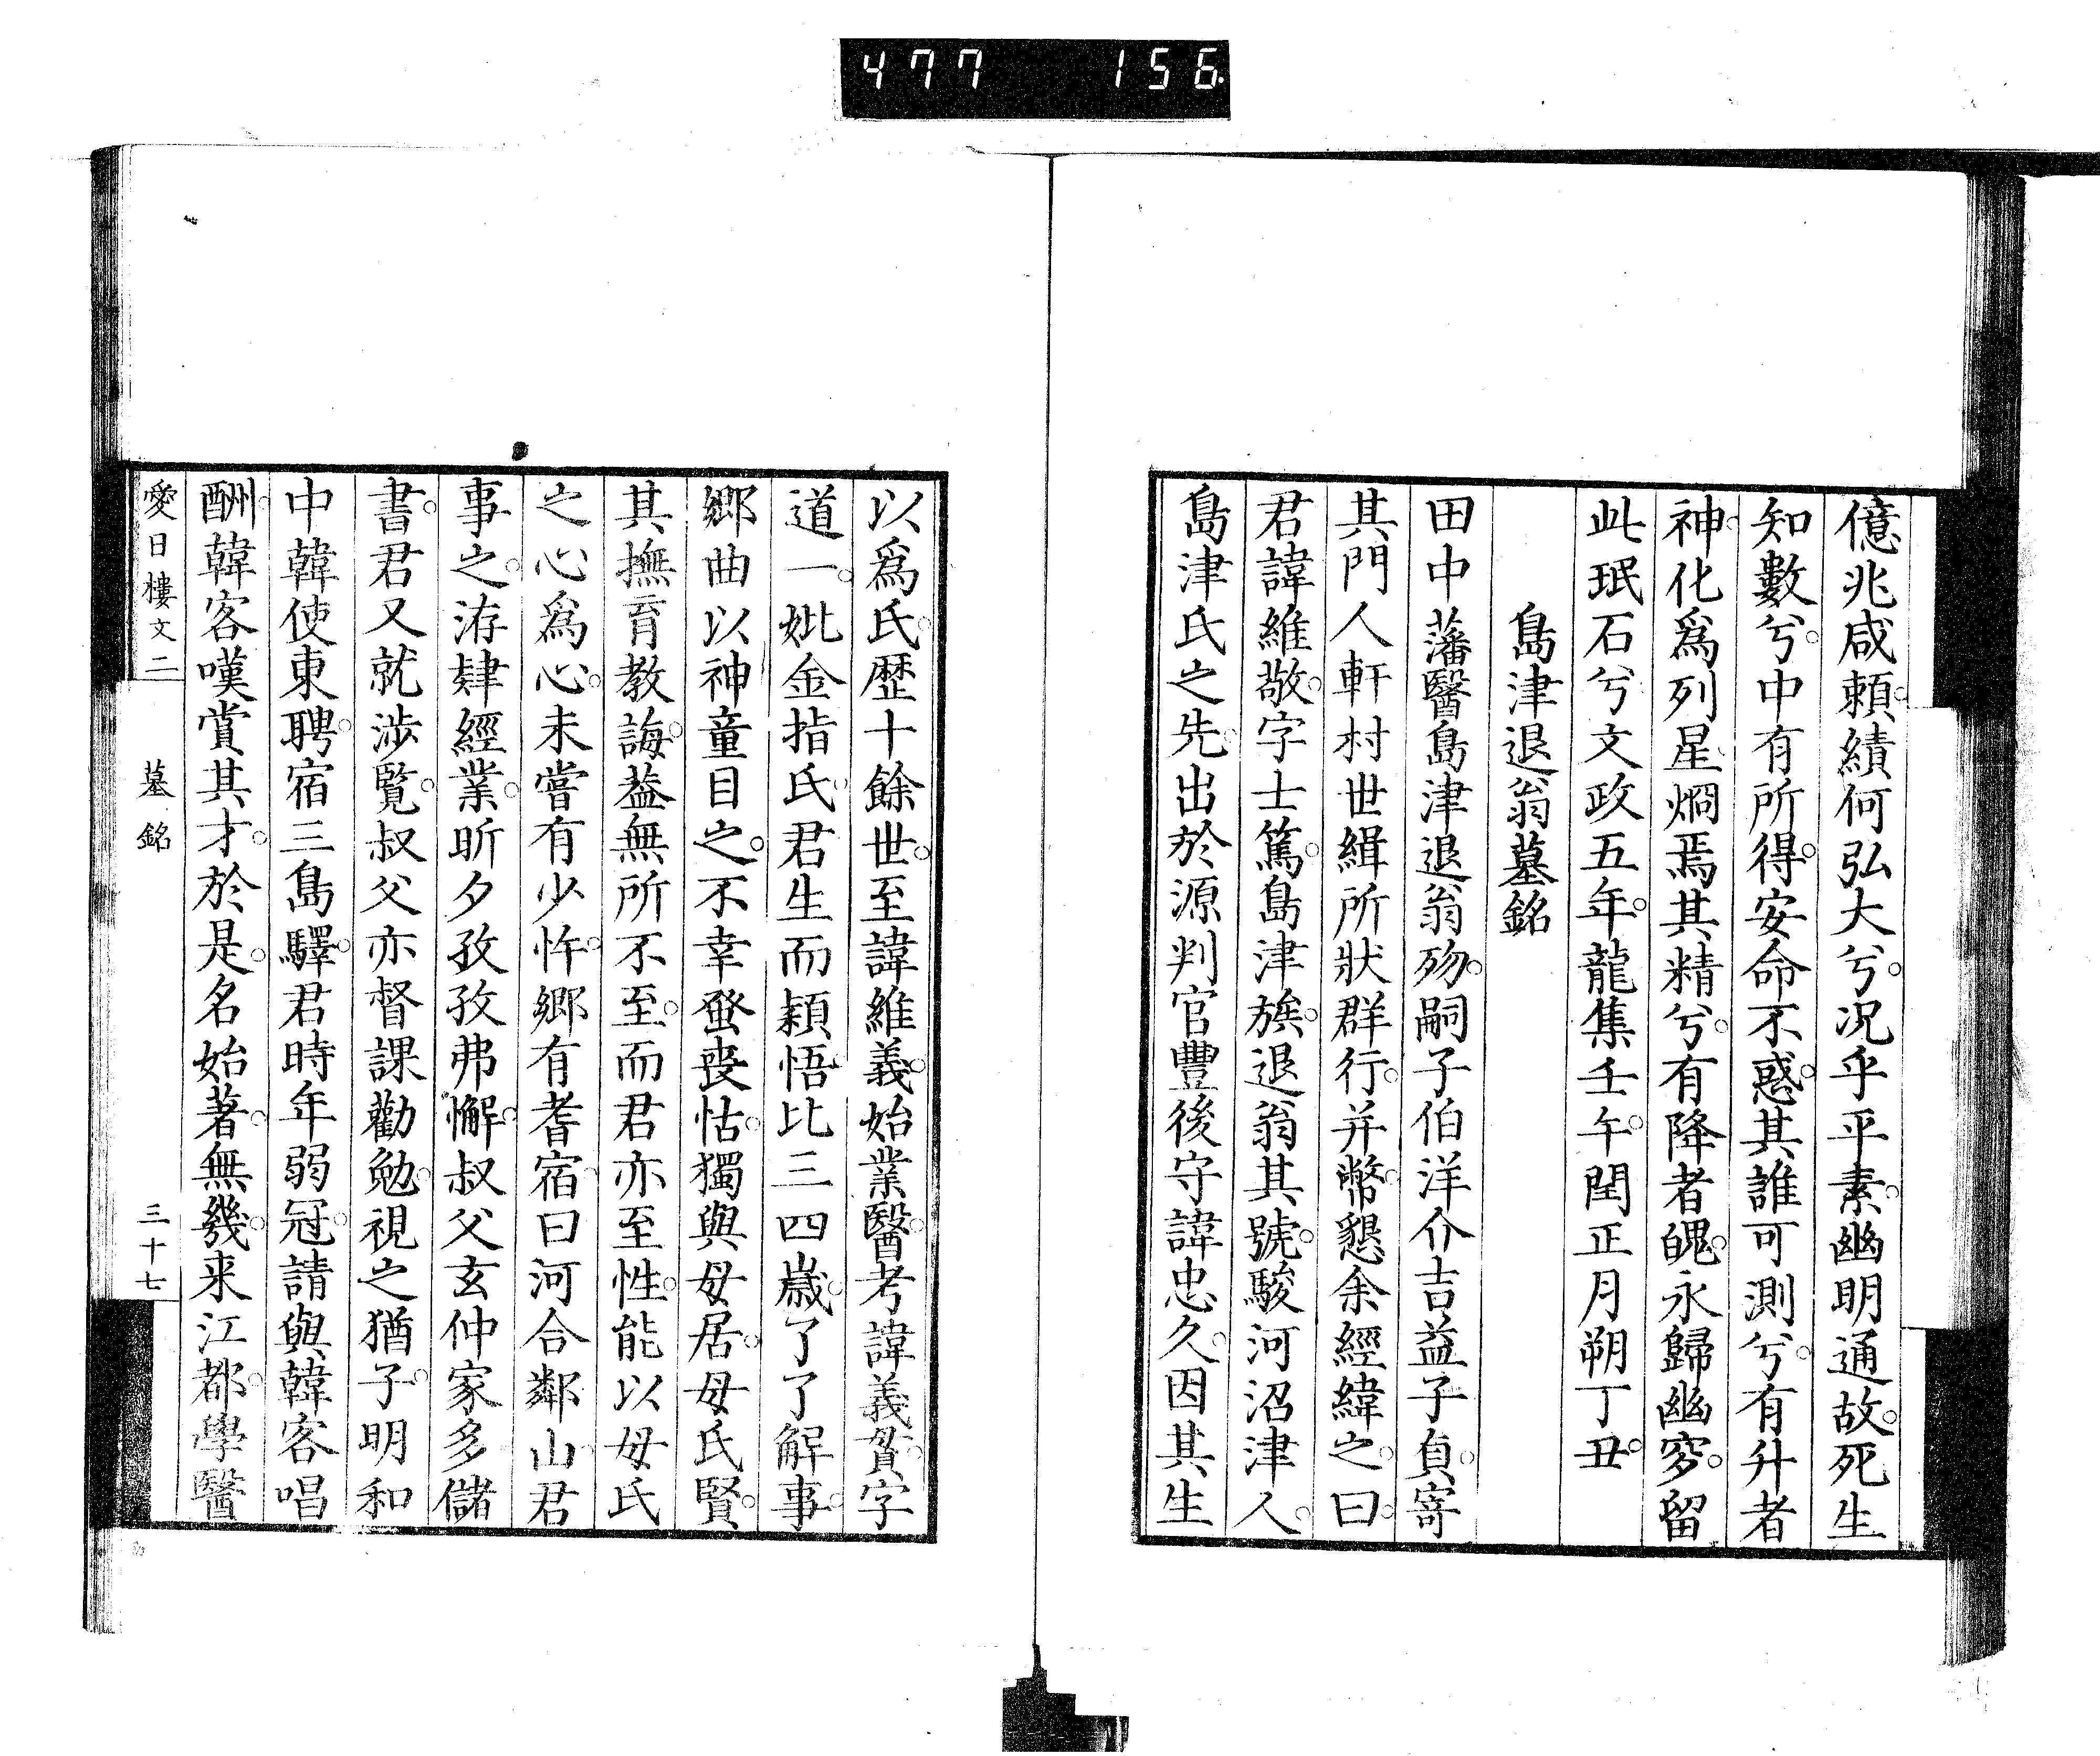 477 156
億兆咸頼績何弘大兮。况乎平素。幽明通故。死生
知數兮。中有所得。安命不惑。其誰可測兮。有升者
神。化爲列星。烱焉其精兮。有降者魄。永歸幽穸。留
此珉石兮。文政五年。龍集壬午。閏正月朔丁丑。
島津退翁墓銘
田中藩醫島津退翁歿。嗣子伯洋介吉益子貞。寄
其門人軒村世緝所狀群行。并幣。懇余經緯之。曰。
君諱維敬。字士篤。島津族。退翁其號。駿河沼津人。
島津氏之先。出於源判官豐後守諱忠久。因其生
以爲氏。歴十餘世。至諱維義。始業醫。考諱義貫。字
道一。妣金指氏。君生而穎悟。比三四歳。了了解事。
郷曲以神童目之。不幸蚤喪怙。獨與母居。母氏賢。
其撫育教誨。葢無所不至。而君亦至性。能以母氏
之心爲心。未嘗有少忤。郷有耆宿。曰河合鄰山。君
事之。洊肄經業。昕夕孜孜弗懈。叔父玄仲家多儲
書。君又就渉覧。叔父亦督課勸勉。視之猶子。明和
中韓使東聘。宿三島驛。君時年弱冠。請與韓客唱
酬。韓客嘆賞其才。於是。名始著。無幾。来江都。學醫
愛日樓文二 墓銘 三十七